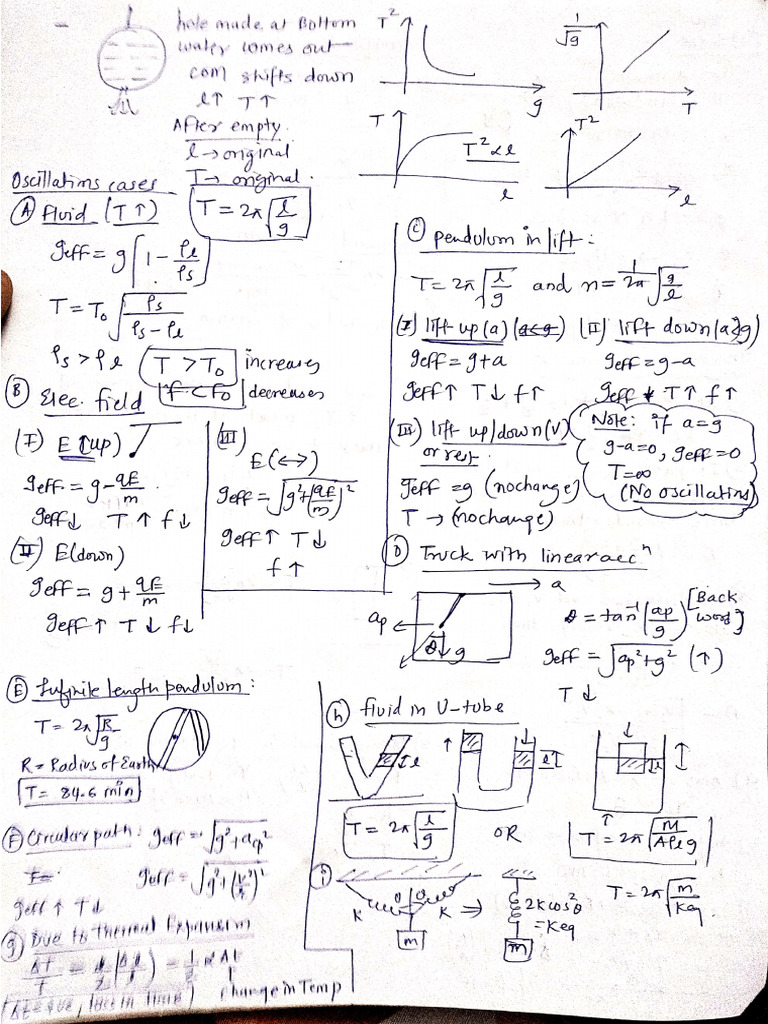 hole made at Bottom
water comes out
com shifts down
l↑ T↑
After empty.
l → original
T → original.
T²
g
1/√g
T
T
T² ∝ l
l
T²
l
Oscillations cases
(A) Fluid (T↑)
T = 2π√(l/g)
geff = g[1 - ρl/ρs]
T = T₀√(ρs/(ρs - ρl))
ρs > ρl T > T₀ increases
f < f₀ decreases
(B) Elec. field
(I) E↑(up)
geff = g - qE/m
geff↓ T↑ f↓
(II) E(down)
geff = g + qE/m
geff↑ T↓ f↓
(III)
E(↔)
geff = √(g² + (qE/m)²)
geff↑ T↓
f↑
(C) pendulum in lift:
T = 2π√(l/g) and n = 1/2π √(g/l)
(I) lift up (a) (a<g)
geff = g+a
geff↑ T↓ f↑
(II) lift down (a≥g)
geff = g-a
geff ↓ T↑ f↑
(III) lift up/down (V)
or rest.
geff = g (nochange)
T → (nochange)
Note: if a=g
g-a=0, geff=0
T=∞
(No oscillatins)
(D) Truck with linear accⁿ
→ a
ap
θ
g
θ = tan⁻¹(ap/g) [Back word]
geff = √(ap²+g²) (↑)
T↓
(E) Infinite length pendulum:
T = 2π√(R/g)
R = Radius of Earth
T = 84.6 min
(F) Circular path: geff = √(g² + acp²)
geff = √(g² + (v²/r)²)
geff↑ T↓
(g) Due to thermal Expansion
Δt/t = 1/2 (Δl/l) = 1/2 α Δt
change in Temp
(h) fluid in U-tube
l
l
l
T = 2π√(l/g) OR T = 2π√(M/Aρlg)
(i)
θ θ
K K ⇒
m
2Kcos²θ
= Keq
m
T = 2π√(m/Keq)